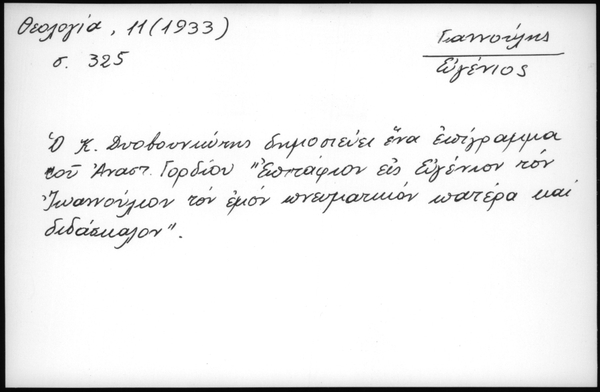 Θεολογία, 11 (1933)
σ. 325
Γιαννούλης
Εὐγένιος
Ὁ Κ. Δυοβουνιώτης δημοσιεύει ἕνα ἐπίγραμμα
τοῦ Ἀναστ. Γορδίου "Ἐπιτάφιον εἰς Εὐγένιον τὸν
Ἰωαννούλιον τόν ἐμόν πνευματικόν πατέρα καί
διδάσκαλον".